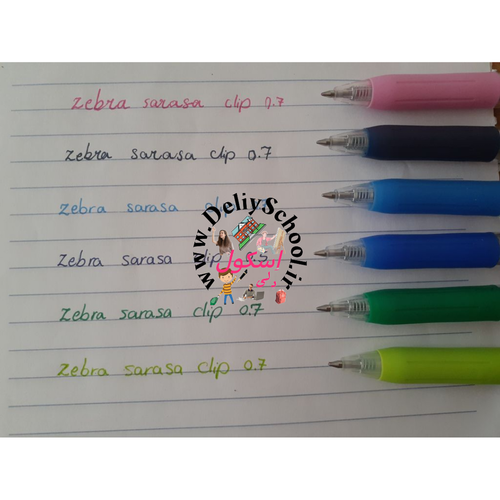 zebra sarasa clip 0.7
zebra sarasa clip 0.7
zebra sarasa cl
zebra sarasa clip
zebra sarasa clip 0.7
zebra sarasa clip 0.7
www.DeliySchool.ir
اسکول
دلی